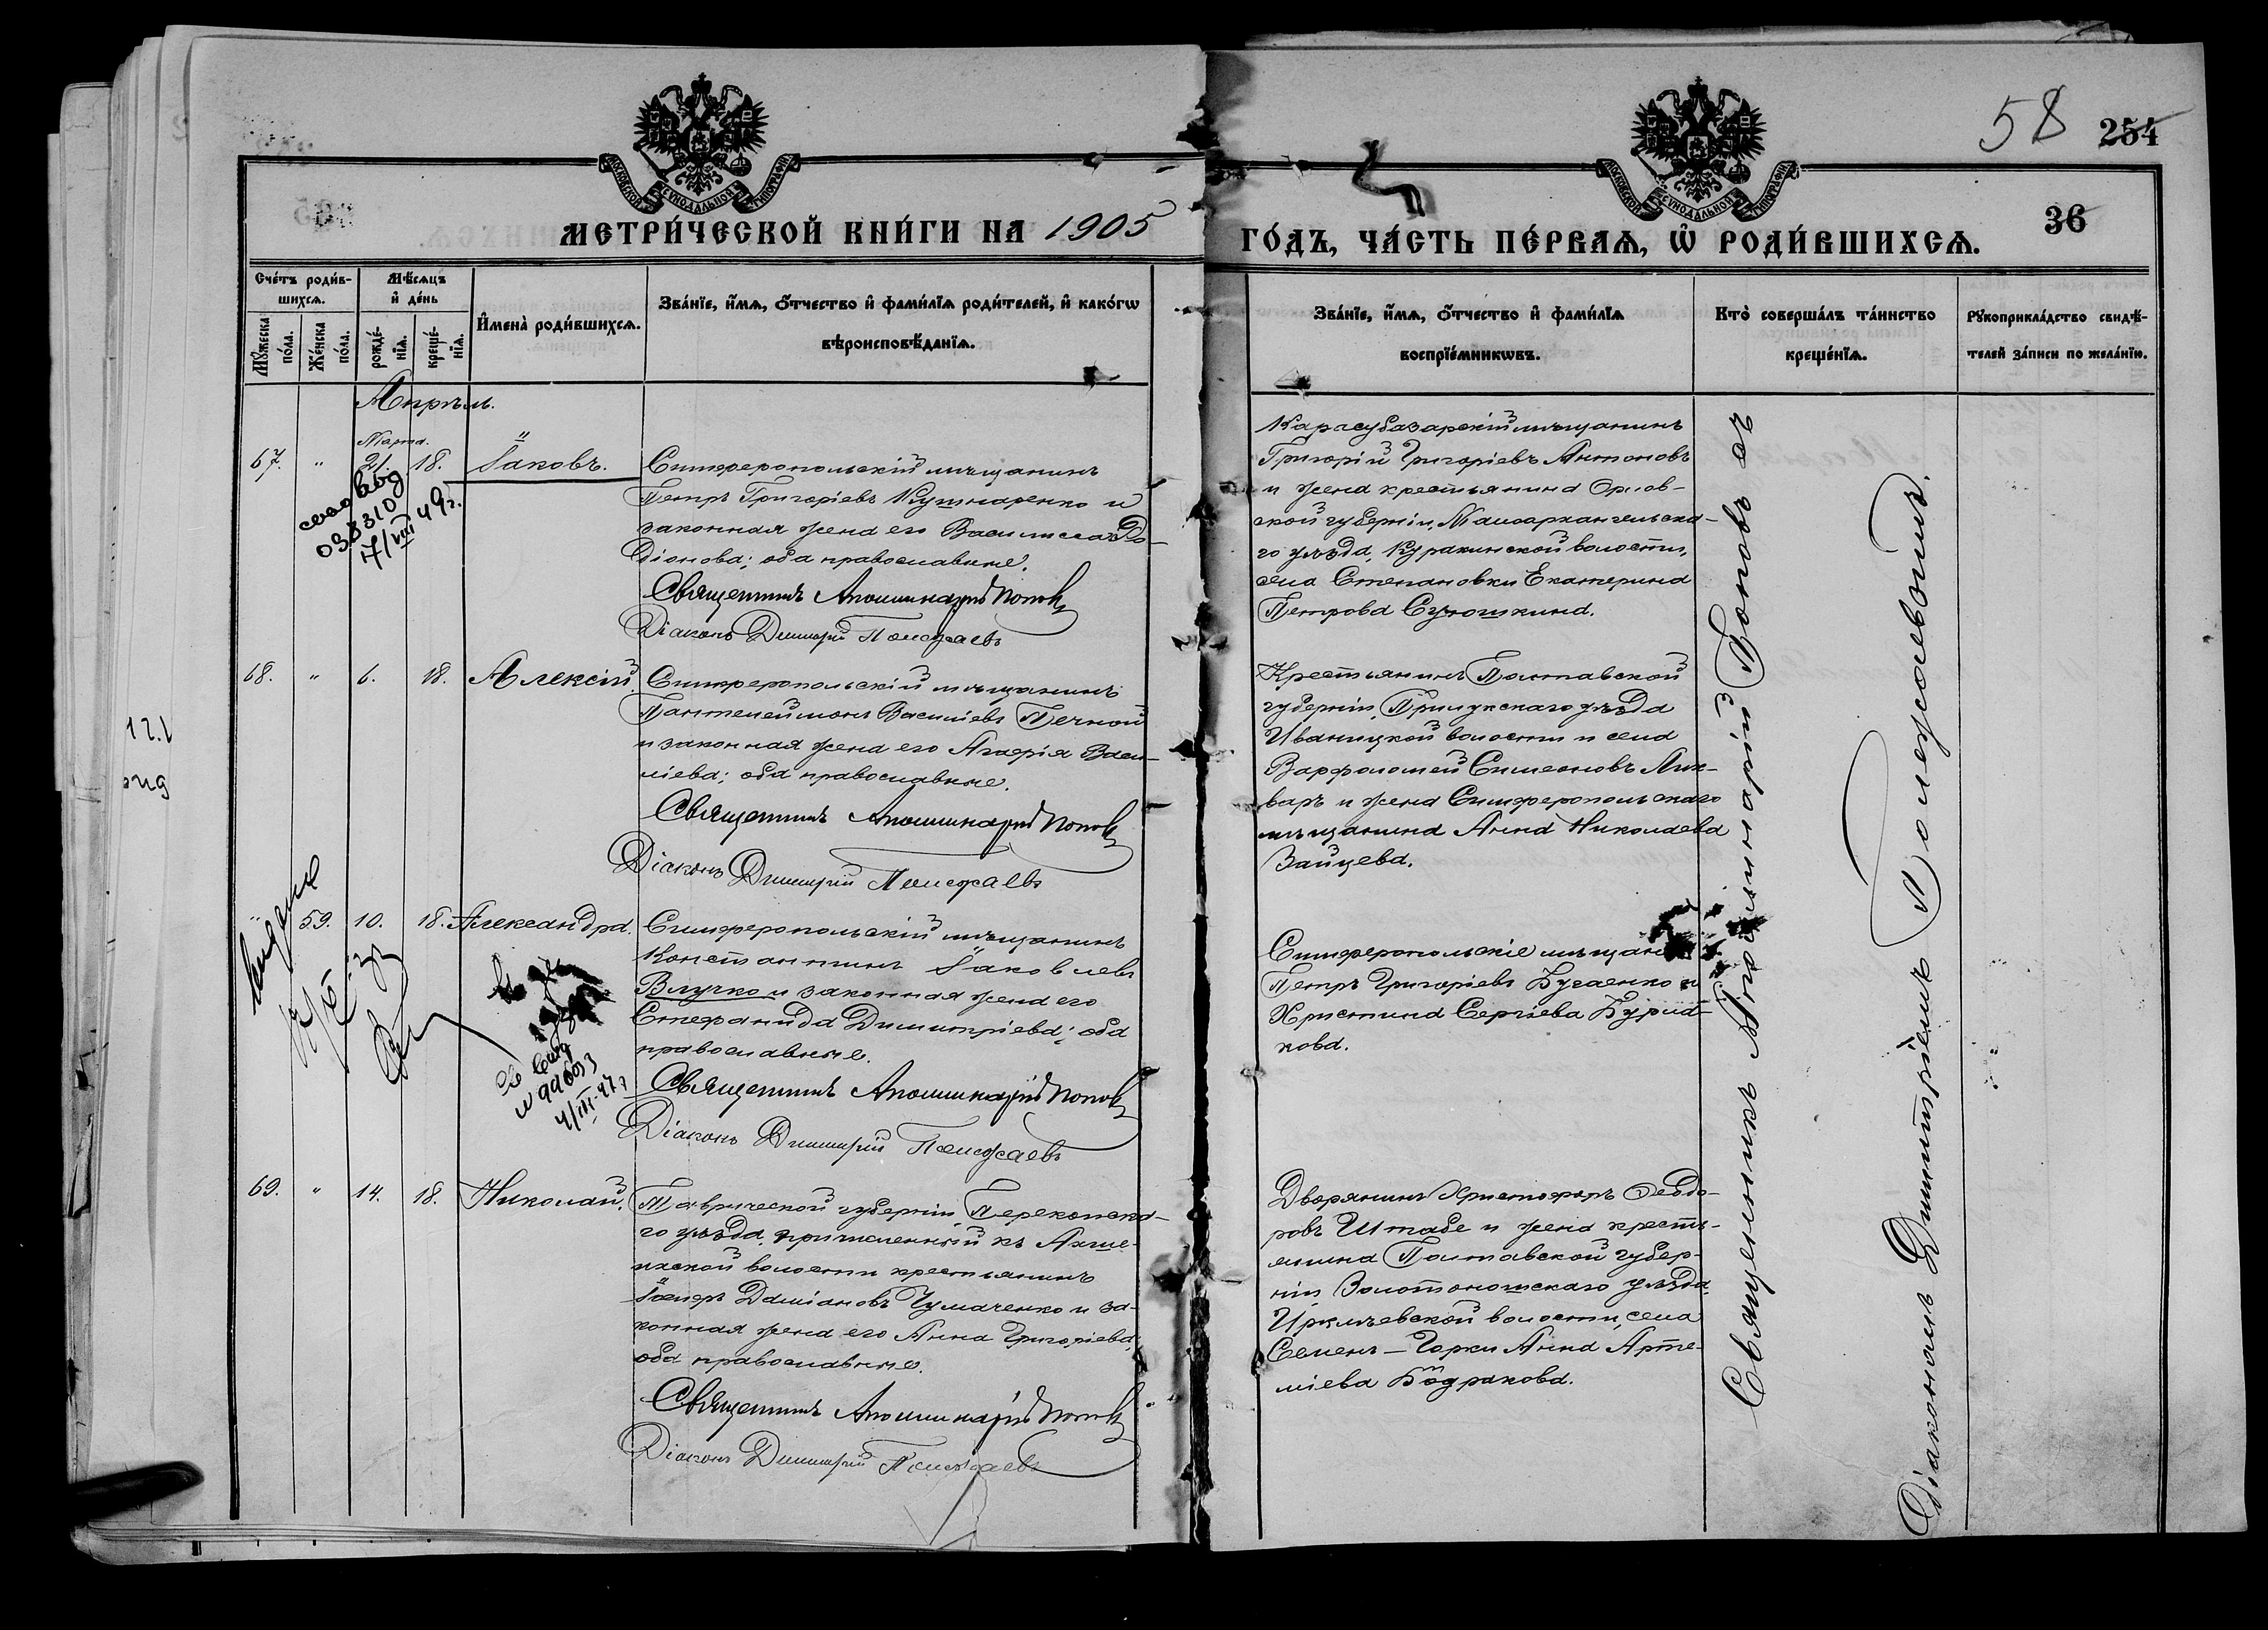 58 254
МОСКОВСКОЙ СѴНОДАЛЬНОЙ ТИПОГРАФІИ
МОСКОВСКОЙ СѴНОДАЛЬНОЙ ТИПОГРАФІИ
36
МЕТРИ́ЧЕСКОЙ КНИ́ГИ НА 1905
ГО́ДЪ, ЧА́СТЬ ПЕ́РВАѦ, Ѡ҆ РОДИ́ВШИХСѦ.
Сче́тъ роди́в-
шихсѧ.
Мꙋ́жеска по́ла.
Же́нска по́ла.
Мѣ́сѧцъ
и҆ де́нь
рожде́-
нїѧ.
креще́-
нїѧ.
И҆мена̀ роди́вшихсѧ.
Зва́нїе, и҆́мѧ, ѻ҆́тчество и҆ фами́лїѧ роди́телей, и҆ како́гѡ
вѣроисповѣ́данїѧ.
Зва́нїе, и҆́мѧ, ѻ҆́тчество и҆ фами́лїѧ
воспрїе́мникѡвъ.
Кто̀ соверша́лъ та́инство
креще́нїѧ.
Рꙋкоприкла́дство свидѣ́-
телей за́писи по жела́нїю.
Апрѣль.
Марта.
67. " 21. 18. Іаковъ.
Симферопольскій мѣщанинъ
Петръ Григоріевъ Кушнаренко и
законная жена его Василисса Ро-
діонова; оба православные.
Священникъ Аполлинарій Поповъ
Діаконъ Димитрій Полежаевъ
033310
17/VIII 49г.
Карасубазарскій мѣщанинъ
Григорій Григоріевъ Антоновъ
и жена крестьянина Орлов-
ской губерніи, Малоархангельска-
го уѣзда, Куракинской волости,
села Степановки Екатерина
Петрова Сушошкина.
68. " 6. 18. Алексій.
Симферопольскій мѣщанинъ
Пантелеймонъ Василіевъ Печной
и законная жена его Агаѳія Васи-
ліева; оба православные.
Священникъ Аполлинарій Поповъ
Діаконъ Димитрій Полежаевъ
Крестьянинъ Полтавской
губерніи, Прилукскаго уѣзда
Иваницкой волости и села
Варфоломей Симеоновъ Лих-
варъ и жена Симферопольскаго
мѣщанина Анна Николаева
Зайцева.
" 59. 10. 18. Александра.
Симферопольскій мѣщанинъ
Константинъ Іаковлевъ
Влучко и законная жена его
Стефанида Димитріева; оба
православные.
Священникъ Аполлинарій Поповъ
Діаконъ Димитрій Полежаевъ
4/III-47 г
Симферопольскіе мѣщане
Петръ Григоріевъ Бугаенко и
Христина Сергіева Курид-
кова.
69. " 14. 18. Николай.
Таврической губерніи, Перекопска-
го уѣзда, причисленный къ Ахше-
ихской волости крестьянинъ
Іосифъ Даміановъ Чумаченко и за-
конная жена его Анна Григоріева;
оба православные.
Священникъ Аполлинарій Поповъ
Діаконъ Димитрій Полежаевъ
Дворянинъ Христофоръ Ѳеодо-
ровъ Штабе и жена кресть-
янина Полтавской губер-
ніи, Золотоношскаго уѣзда,
Ирклѣевской волости, села
Семенъ-Горки Анна Арте-
міева Бодракова.
Священникъ Аполлинарій Поповъ съ
Діакономъ Димитріемъ Полежаевымъ.